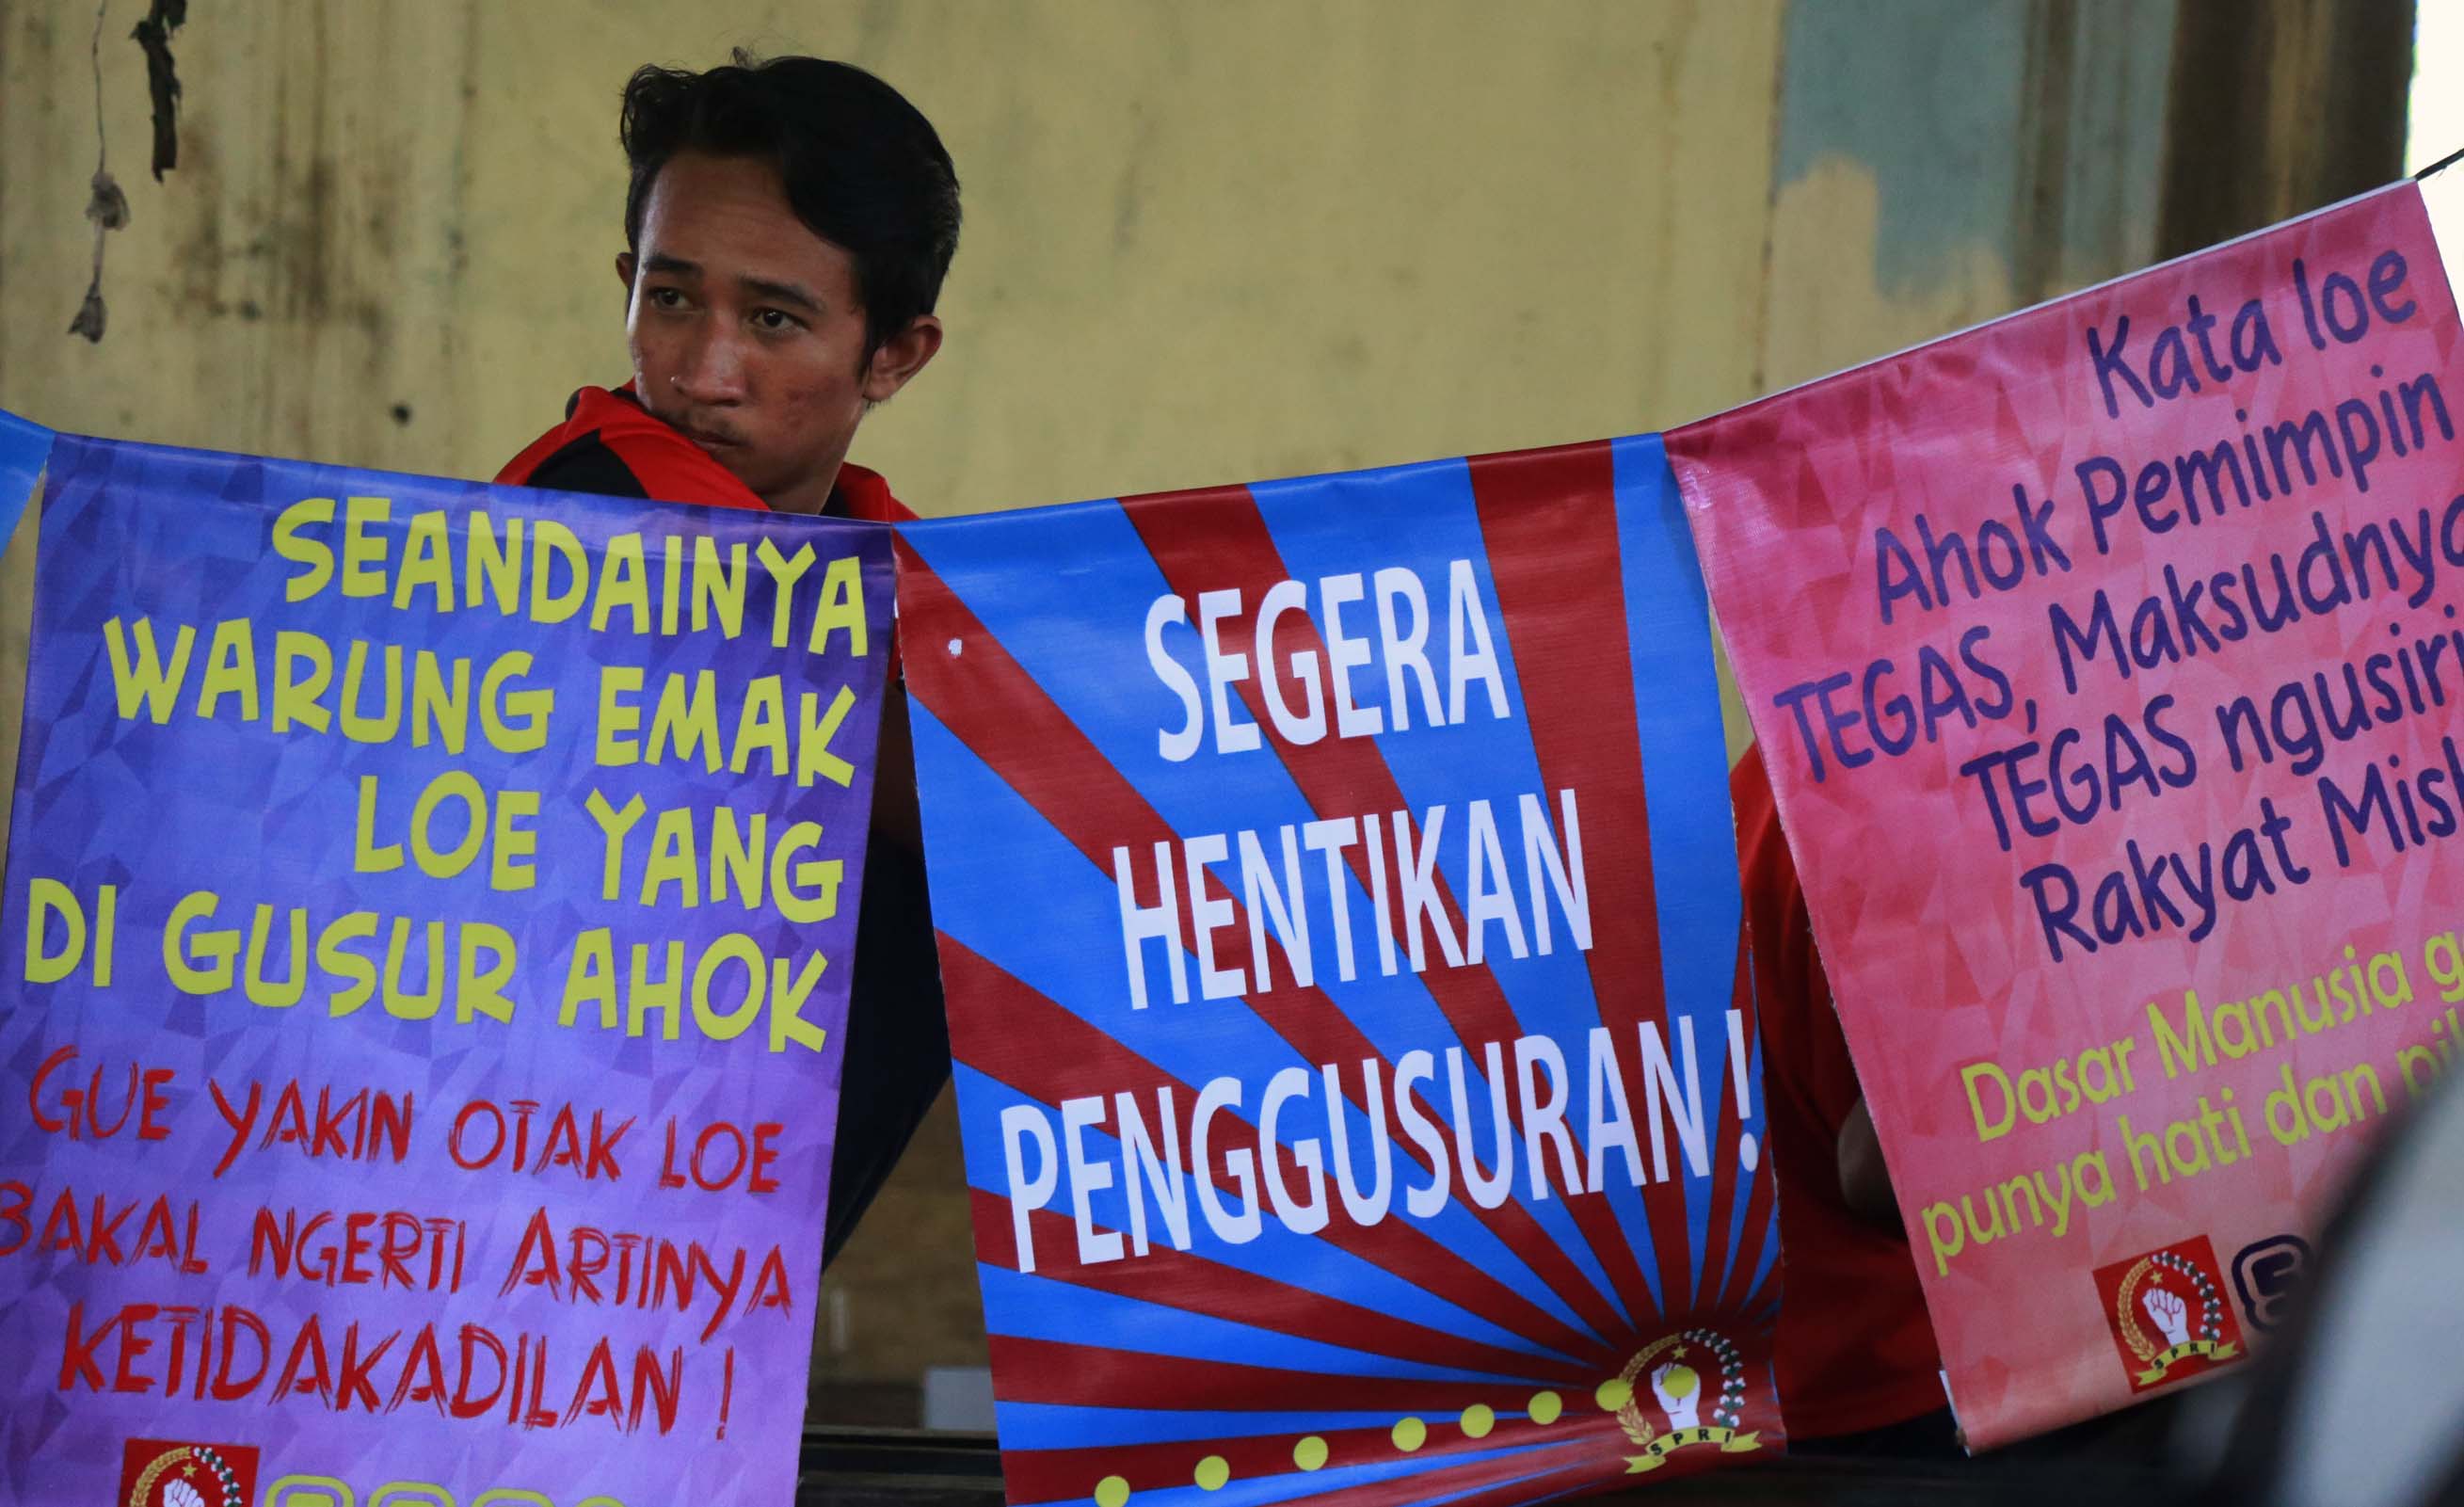 SEANDAINYA
WARUNG EMAK
LOE YANG
DI GUSUR AHOK
GUE YAKIN OTAK LOE
BAKAL NGERTI ARTINYA
KETIDAKADILAN !
SEGERA
HENTIKAN
PENGGUSURAN !
SPRI
Kata loe
Ahok Pemimpin
TEGAS, Maksudnya
TEGAS ngusiri
Rakyat Mis
Dasar Manusia g
punya hati dan
SPRI